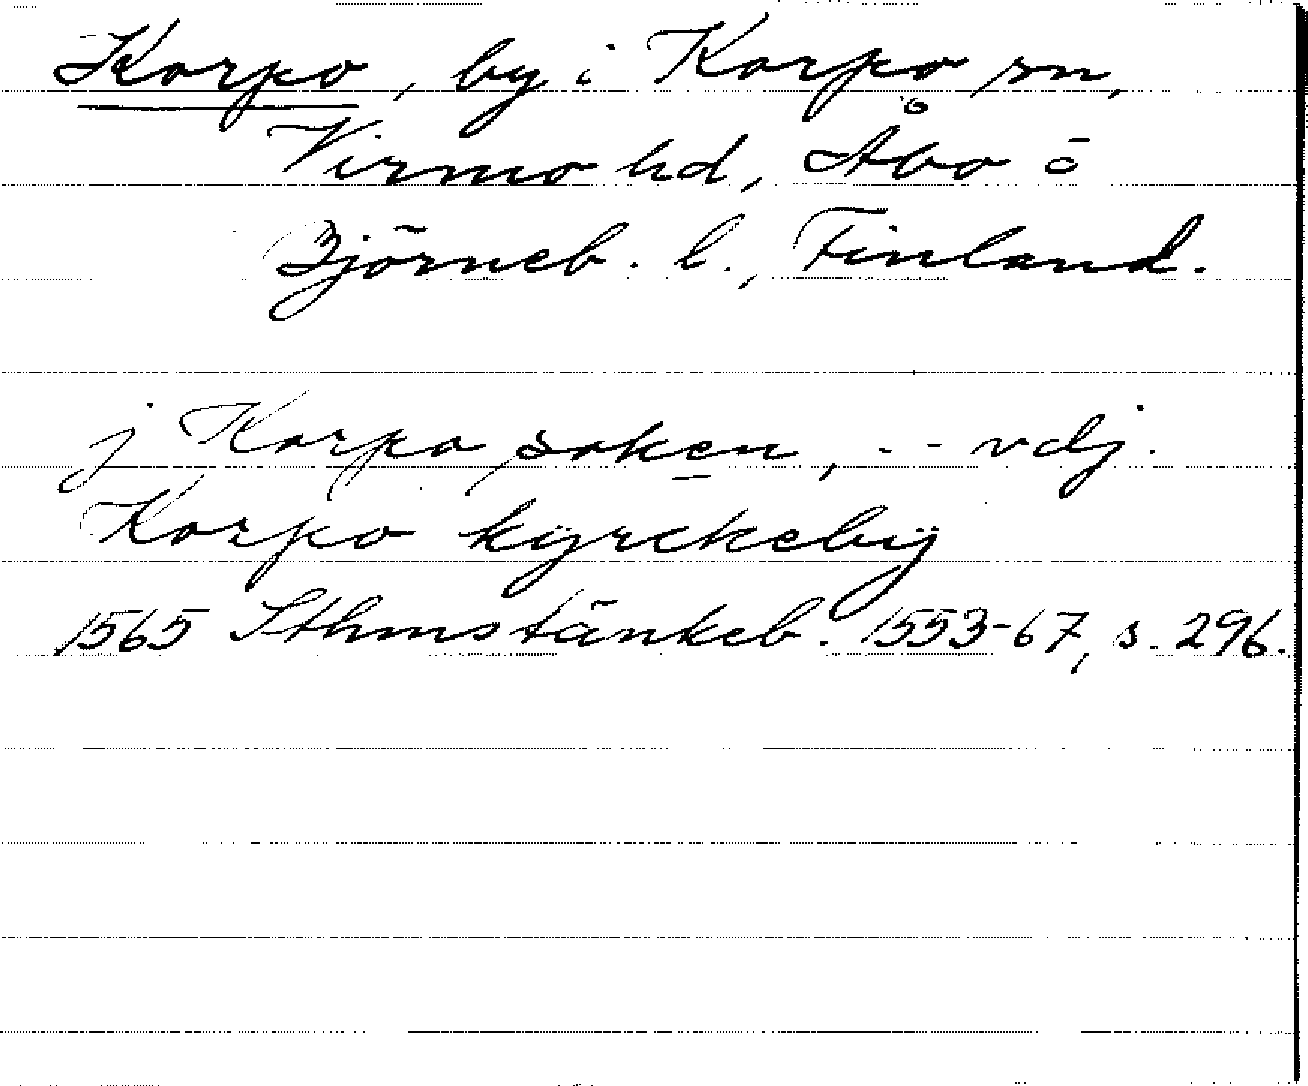 Korpo, by i Korpo sn,
Virmo hd, Åbo o
Björneb. l., Finland.
j Korpo soken, -- vdj.
Korpo kyrckebÿ
1565 Sthmstänkeb. 1553-67, s. 296.